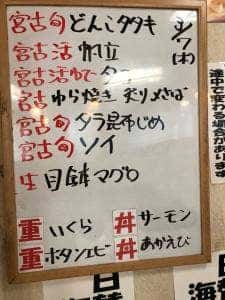 宮古旬どんこタタキ
3/7(木)
宮古活帆立
宮古活ゆでタコ
宮古ゆら焼き炙り〆さば
宮古旬タラ昆布じめ
宮古旬ソイ
生目鉢マグロ
重いくら 丼サーモン
重ボタンエビ 丼あかえび
途中で変わる
場合が
あります
日替
海